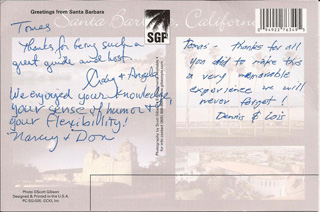 Greetings from Santa Barbara
Santa Barbara, California
SGP
Tomas
Thanks for being such a
great guide and host.
& Angela
We enjoyed your knowledge,
your sense of humor &
your flexibillity!
Nancy & Don
Tomas - thanks for all
you did to make this
a very memorable
experience we will
never forget!
Dennis & Lois
Photo: ©Scott Gibson
Designed & Printed in the U.S.A.